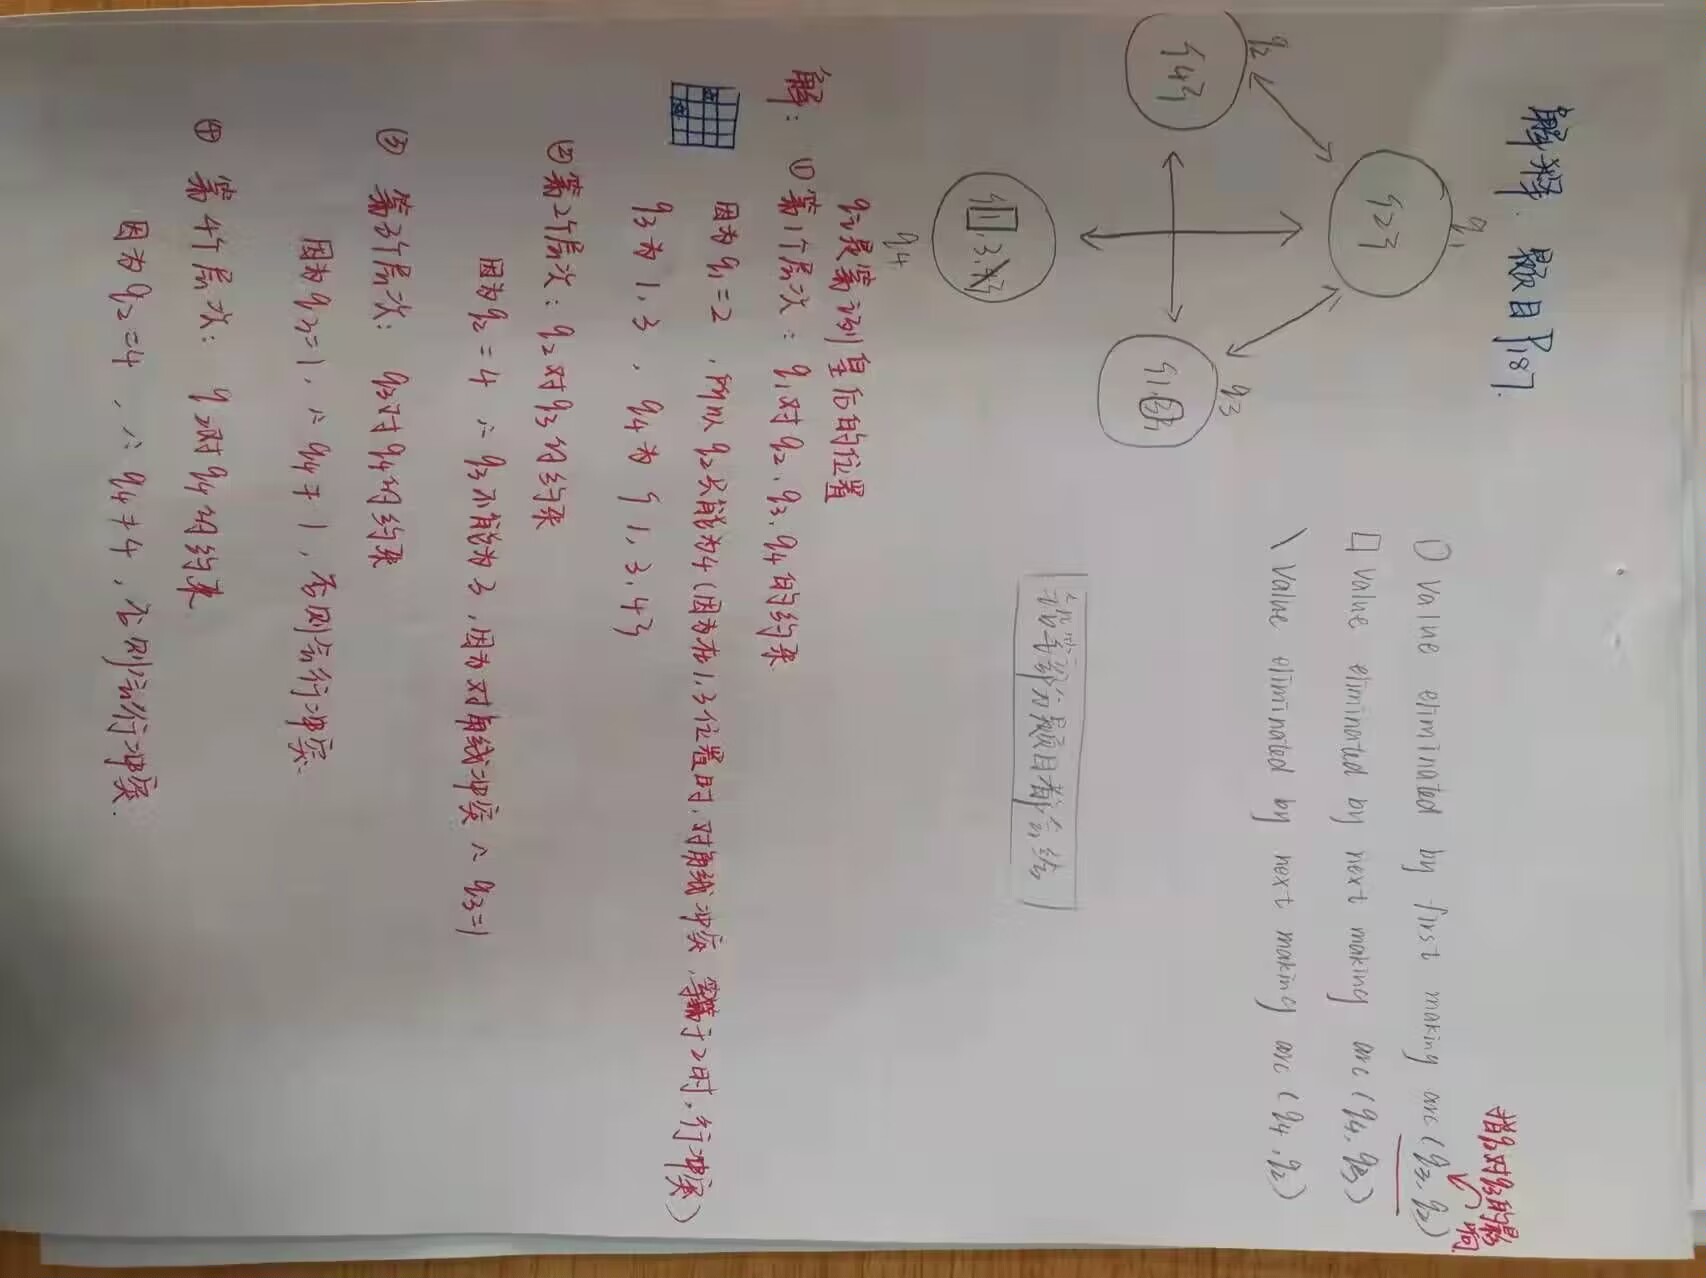 解释. 题目P187.
指q2对q3的影响
q1
{2}
○ Value eliminated by first making arc (q3, q2)
□ Value eliminated by next making arc (q4, q3)
\ Value eliminated by next making arc (q4, q2)
q2
{4}
q3
{1,3}
铅笔部分题目都会给
{1,3,4}
q4
qi是第i列皇后的位置
解: ①第1个层次: q1对q2、q3、q4的约束
因为q1=2, 所以q2只能为4(因为在1,3位置时,对角线冲突,等于2时,行冲突)
q3为1,3, q4为{1,3,4}
②第2个层次: q2对q3的约束
因为q2=4 ∴q3不能为3,因为对角线冲突∴q3=1
③ 第3个层次: q3对q4的约束
因为q3=1, ∴q4≠1, 否则会行冲突.
④ 第4个层次: q2对q4的约束
因为q2=4, ∴q4≠4, 否则会行冲突.